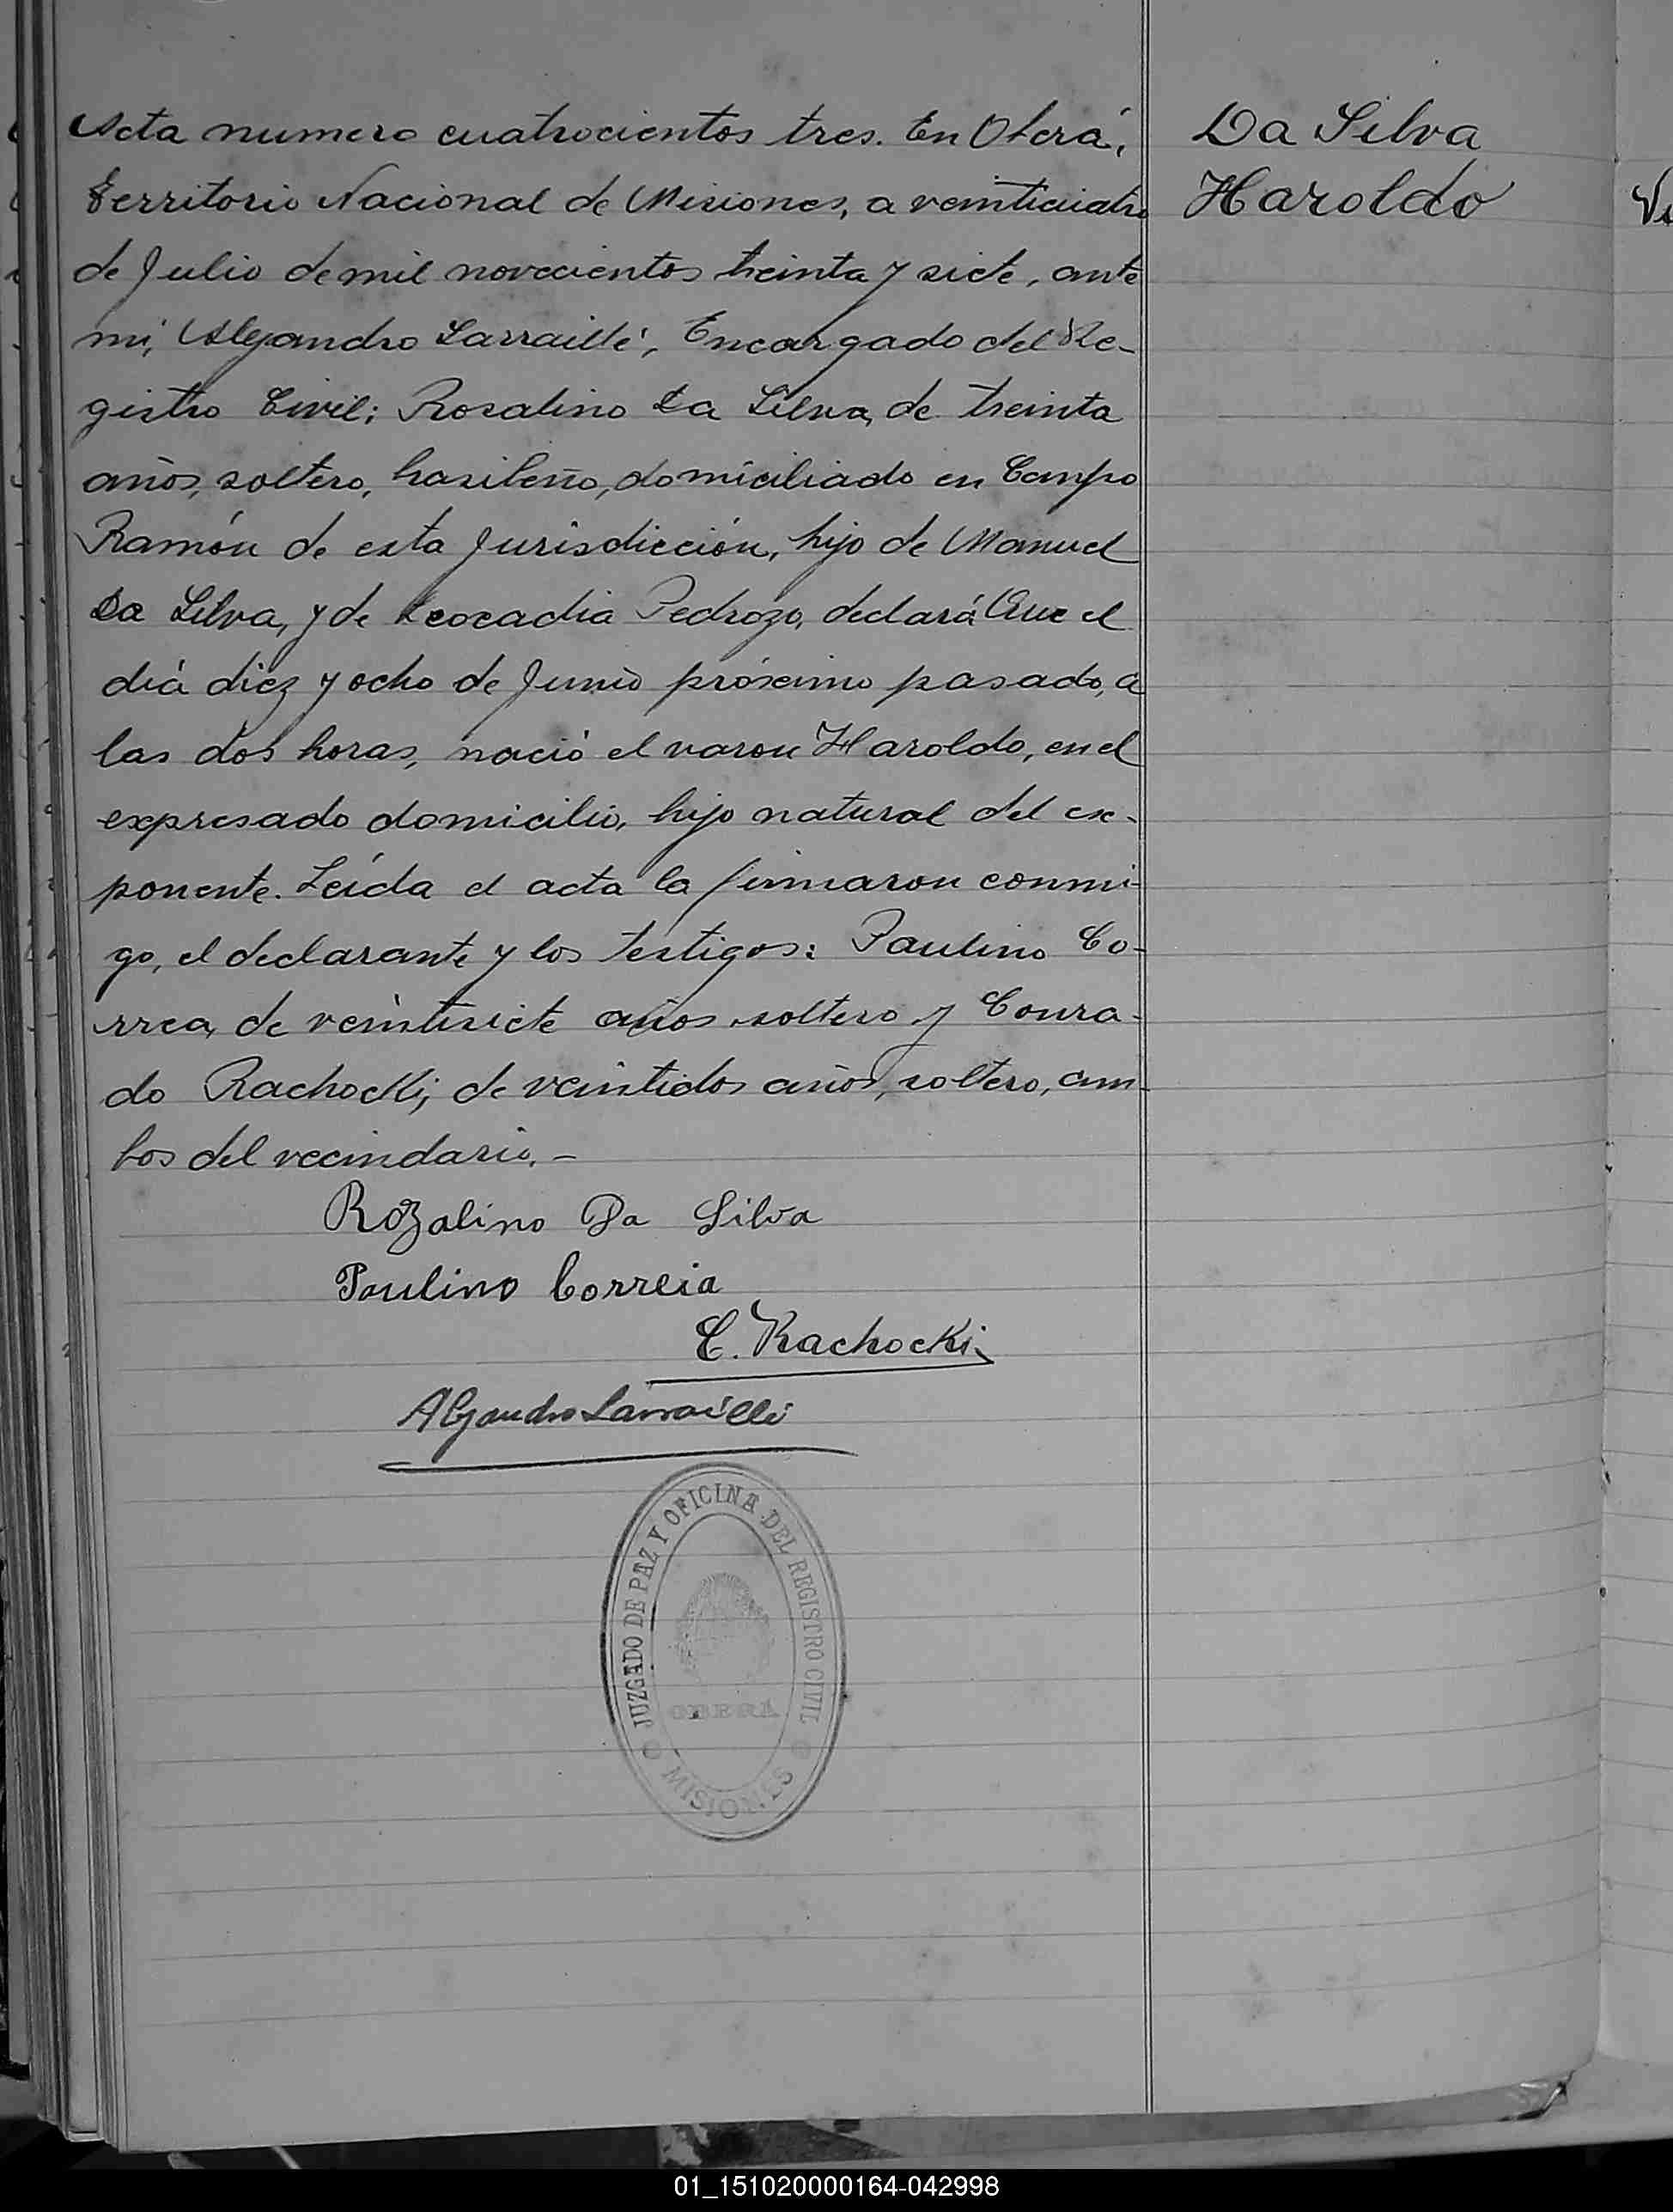 Acta numero cuatrocientos tres. En Oberá,
Territorio Nacional de Misiones, a veinticuatro
de Julio de mil novecientos treinta y siete, ante
mi, Alejandro Larraillé, Encargado del Re-
gistro Civil; Rosalino Da Silva, de treinta
años, soltero, brasileño, domiciliado en Campo
Ramón de esta Jurisdicción, hijo de Manuel
Da Silva, y de Leocadia Pedrozo, declará: Que el
diá diez y ocho de Junio próximo pasado, a
las dos horas, nació el varon Haroldo, en el
expresado domicilio, hijo natural del ex-
ponente. Leída el acta la firmaron conmi-
go, el declarante y los testigos: Paulino Co-
rrea, de veintisiete años soltero y Conra-
do Rachocki, de veintidos años, soltero, am-
bos del vecindario. -
Rozalino Da Silva
Paulino Correia
C. Rachocki
Alejandro Larraillé
JUZGADO DE PAZ Y OFICINA DEL REGISTRO CIVIL
OBERA
MISIONES
Da Silva
Haroldo
01_151020000164-042998